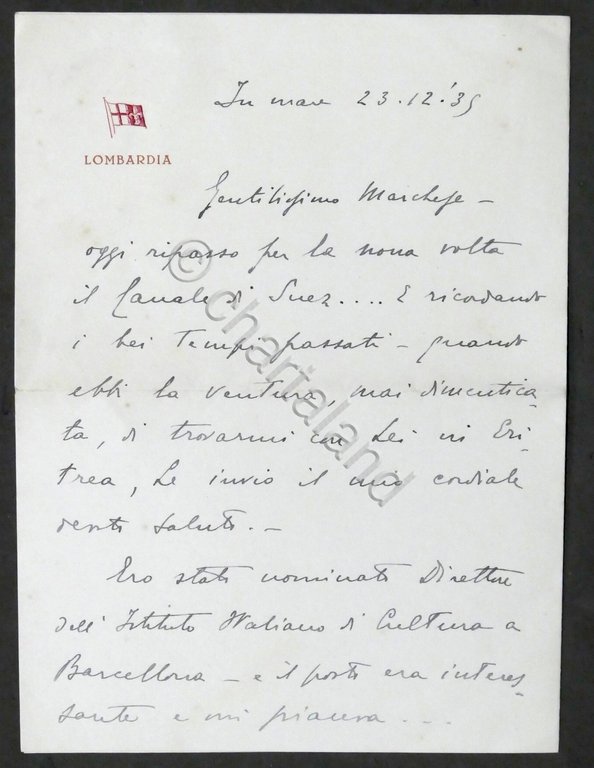 In mare 23.12.'35
LOMBARDIA
Gentilissimo Marchese -
oggi ripasso per la nona volta
il Canale di Suez.... E ricordando
i bei tempi passati - quando
ebbi la ventura, mai dimentica-
ta, di trovarmi con Lei in Eri-
trea, Le invio il mio cordiale
devoto saluto. -
Ero stato nominato Direttore
dell'Istituto Italiano di Cultura a
Barcellona - e il posto era interes-
sante e mi piaceva ...
© chartaland